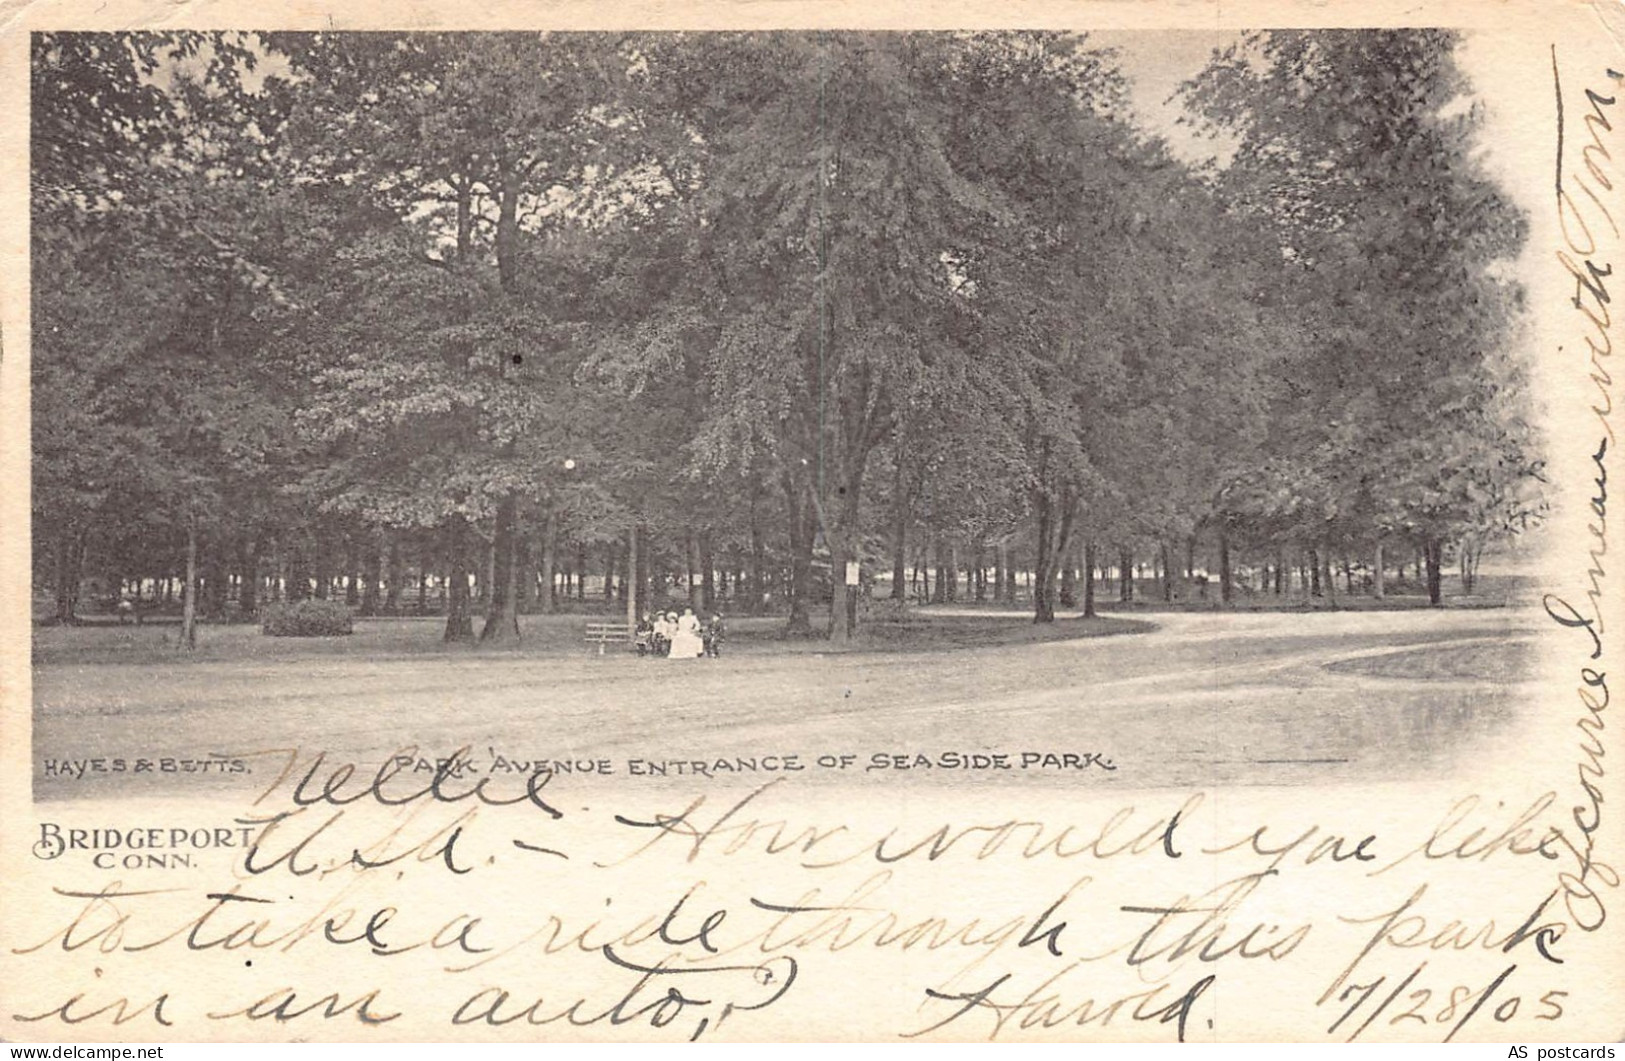 HAYES & BETTS.
PARK AVENUE ENTRANCE OF SEASIDE PARK.
BRIDGEPORT
CONN.
Nellie
U.S.A. - How would you like
to take a ride through this park
in an auto,?
Harold. 7/28/05
Of course I mean with Tom.
AS postcards